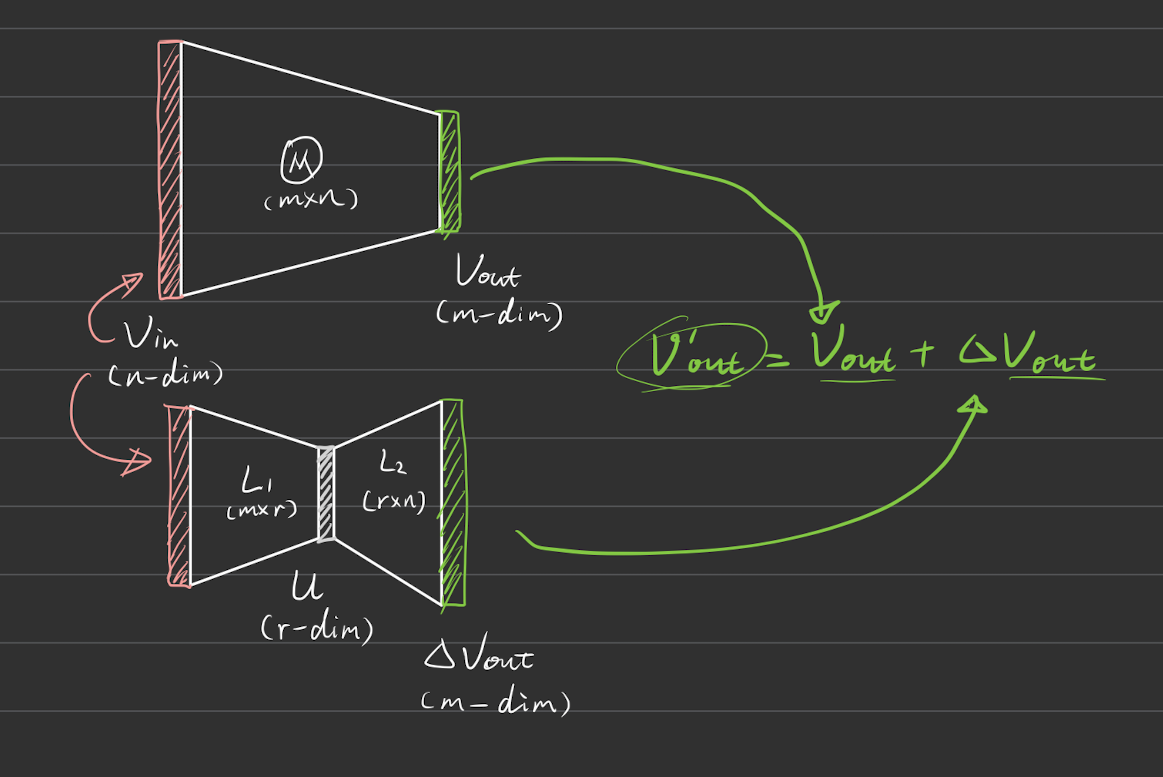 M
(m×n)
Vout
(m-dim)
Vin
(n-dim)
V'out = Vout + ΔVout
L1
(m×r)
L2
(r×n)
U
(r-dim)
ΔVout
(m-dim)